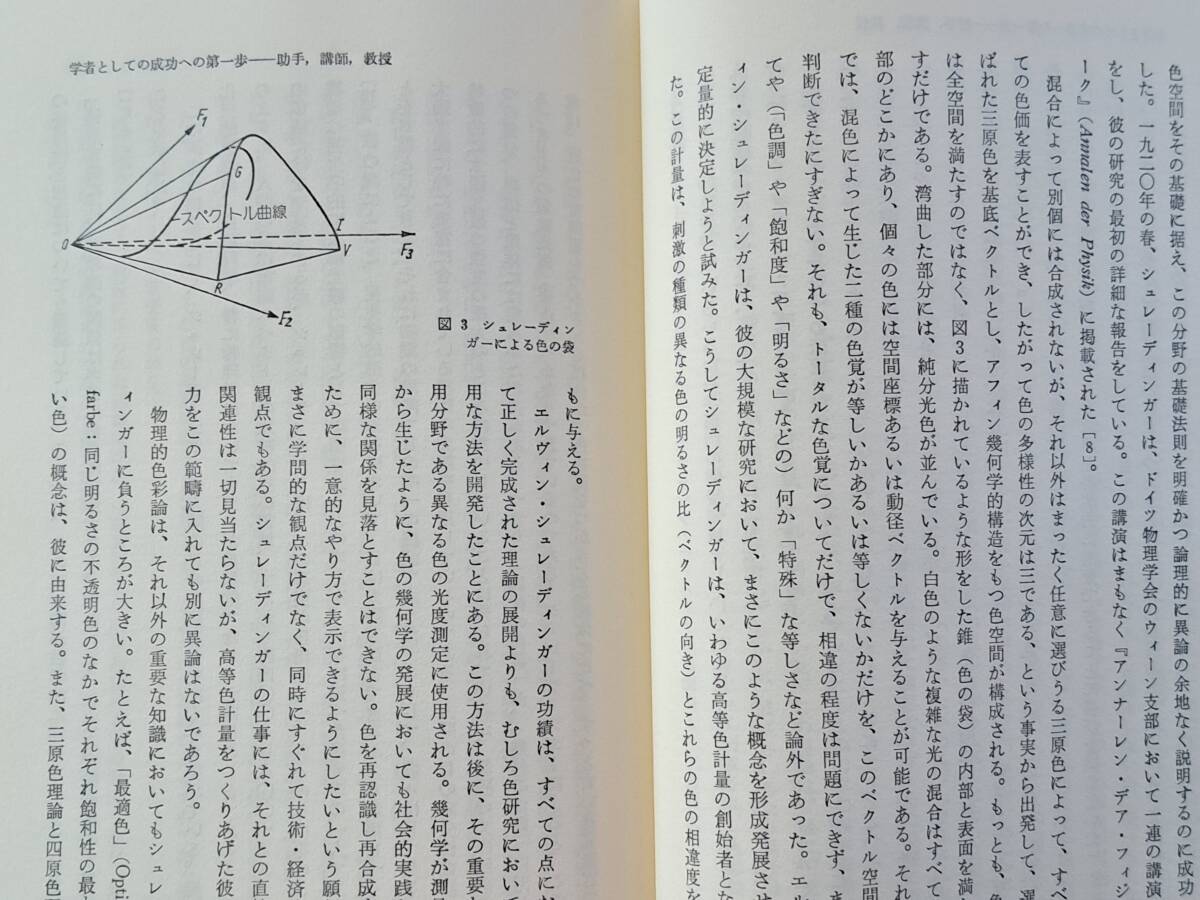 色空間をその基礎に据え、この分野の基礎法則を明確かつ論理的に異論の余地なく説明するのに成功
した。一九二〇年の春、シュレーディンガーは、ドイツ物理学会のウィーン支部において一連の講演
をし、彼の研究の最初の詳細な報告をしている。この講演はまもなく『アンナーレン・デア・フィジ
ーク』(Annalen der Physik)に掲載された[8]。
混合によって別個には合成されないが、それ以外はまったく任意に選びうる三原色によって、すべ
ての色価を表すことができ、したがって色の多様性の次元は三である、という事実から出発して、選
ばれた三原色を基底ベクトルとし、アフィン幾何学的構造をもつ色空間が構成される。もっとも、色
は全空間を満たすのではなく、図3に描かれているような形をした錐(色の袋)の内部と表面を満た
すだけである。湾曲した部分には、純分光色が並んでいる。白色のような複雑な光の混合はすべて
部のどこかにあり、個々の色には空間座標あるいは動径ベクトルを与えることが可能である。それ
では、混色によって生じた二種の色覚が等しいかあるいは等しくないかだけを、このベクトル空間
判断できたにすぎない。それも、トータルな色覚についてだけで、相違の程度は問題にできず、ま
てや(「色調」や「飽和度」や「明るさ」などの)何か「特殊」な等しさなど論外であった。エル
ィン・シュレーディンガーは、彼の大規模な研究において、まさにこのような概念を形成発展させ
定量的に決定しようと試みた。こうしてシュレーディンガーは、いわゆる高等色計量の創始者とな
た。この計量は、刺激の種類の異なる色の明るさの比(ベクトルの向き)とこれらの色の相違度を
学者としての成功への第一歩——助手,講師,教授
F1
G
スペクトル曲線
I
O
V
F3
R
F2
図 3 シュレーディン
ガーによる色の袋
もに与える。
エルヴィン・シュレーディンガーの功績は、すべての点にお
て正しく完成された理論の展開よりも、むしろ色研究において
用な方法を開発したことにある。この方法は後に、その重要
用分野である異なる色の光度測定に使用される。幾何学が測
から生じたように、色の幾何学の発展においても社会的実践
同様な関係を見落とすことはできない。色を再認識し再合成
ために、一意的なやり方で表示できるようにしたいという願
まさに学問的な観点だけでなく、同時にすぐれて技術・経済
観点でもある。シュレーディンガーの仕事には、それとの直
関連性は一切見当たらないが、高等色計量をつくりあげた彼
力をこの範疇に入れても別に異論はないであろう。
物理的色彩論は、それ以外の重要な知識においてもシュレ
ィンガーに負うところが大きい。たとえば、「最適色」(Opti
farbe:同じ明るさの不透明色のなかでそれぞれ飽和性の最
い色)の概念は、彼に由来する。また、三原色理論と四原色